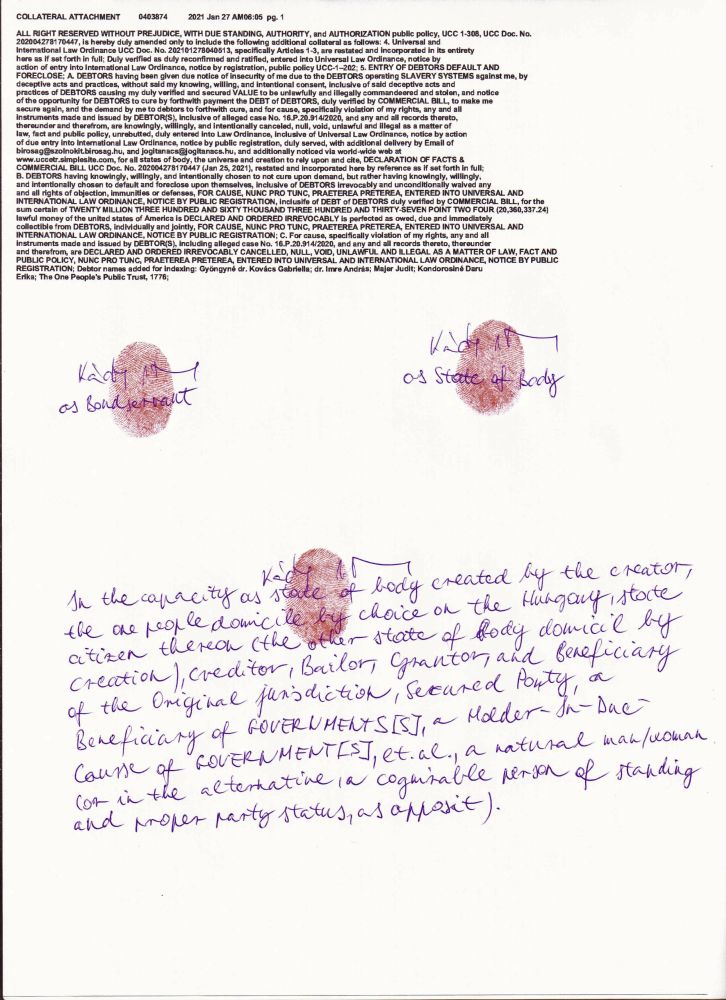 COLLATERAL ATTACHMENT 0403874 2021 Jan 27 AM06:05 pg. 1
ALL RIGHT RESERVED WITHOUT PREJUDICE, WITH DUE STANDING, AUTHORITY, and AUTHORIZATION public policy, UCC 1-308, UCC Doc. No.
2020042781704​47, is hereby duly amended only to include the following additional collateral as follows: 4. Universal and
International Law Ordinance UCC Doc. No. 2021012780​40513, specifically Articles 1-3, are restated and incorporated in its entirety
here as if set forth in full; Duly verified as duly reconfirmed and ratified, entered into Universal Law Ordinance, notice by
action of entry into International Law Ordinance, notice by registration, public policy UCC-1--202; 5. ENTRY OF DEBTORS DEFAULT AND
FORECLOSE; A. DEBTORS having been given due notice of insecurity of me due to the DEBTORS operating SLAVERY SYSTEMS against me, by
deceptive acts and practices, without said my knowing, willing, and intentional consent, inclusive of said deceptive acts and
practices of DEBTORS causing my duly verified and secured VALUE to be unlawfully and illegally commandeered and stolen, and notice
of the opportunity for DEBTORS to cure by forthwith payment the DEBT of DEBTORS, duly verified by COMMERCIAL BILL, to make me
secure again, and the demand by me to debtors to forthwith cure, and for cause, specifically violation of my rights, any and all
instruments made and issued by DEBTOR(S), inclusive of alleged case No. 16.P.20.914/2020, and any and all records thereto,
thereunder and therefrom, are knowingly, willingly, and intentionally canceled, null, void, unlawful and illegal as a matter of
law, fact and public policy, unrebutted, duly entered into Law Ordinance, inclusive of Universal Law Ordinance, notice by action
of due entry into International Law Ordinance, notice by public registration, duly served, with additional delivery by Email of
birosag@szolnokit.birosag.hu, and jogitanacs@jogitanacs.hu, and additionally noticed via world-wide web at
www.uccetr.simplesite.com, for all states of body, the universe and creation to rely upon and cite, DECLARATION OF FACTS &
COMMERCIAL BILL UCC Doc. No. 202004278170447 (Jan 25, 2021), restated and incorporated here by reference as if set forth in full;
B. DEBTORS having knowingly, willingly, and intentionally chosen to not cure upon demand, but rather having knowingly, willingly,
and intentionally chosen to default and foreclose upon themselves, inclusive of DEBTORS irrevocably and unconditionally waived any
and all rights of objection, immunities or defenses, FOR CAUSE, NUNC PRO TUNC, PRAETEREA PRETEREA, ENTERED INTO UNIVERSAL AND
INTERNATIONAL LAW ORDINANCE, NOTICE BY PUBLIC REGISTRATION, inclusife of DEBT of DEBTORS duly verified by COMMERCIAL BILL, for the
sum certain of TWENTY MILLION THREE HUNDRED AND SIXTY THOUSAND THREE HUNDRED AND THIRTY-SEVEN POINT TWO FOUR (20,360,337.24)
lawful money of the united states of America is DECLARED AND ORDERED IRREVOCABLY is perfected as owed, due and immediately
collectible from DEBTORS, individually and jointly, FOR CAUSE, NUNC PRO TUNC, PRAETEREA PRETEREA, ENTERED INTO UNIVERSAL AND
INTERNATIONAL LAW ORDINANCE, NOTICE BY PUBLIC REGISTRATION; C. For cause, specifically violation of my rights, any and all
instruments made and issued by DEBTOR(S), including alleged case No. 16.P.20.914/2020, and any and all records thereto, thereunder
and therefrom, are DECLARED AND ORDERED IRREVOCABLY CANCELLED, NULL, VOID, UNLAWFUL AND ILLEGAL AS A MATTER OF LAW, FACT AND
PUBLIC POLICY, NUNC PRO TUNC, PRAETEREA PRETEREA, ENTERED INTO UNIVERSAL AND INTERNATIONAL LAW ORDINANCE, NOTICE BY PUBLIC
REGISTRATION; Debtor names added for indexing: Gyöngyné dr. Kovács Gabriella; dr. Imre András; Majer Judit; Kondorosiné Daru
Erika; The One People's Public Trust, 1776;
Kády
as Bondservant
Kády
as State of Body
Kády
In the capacity as state of body created by the creator,
the one people domicile by choice on the Hungary, state
citizen thereon (the other state of Body domicil by
creation), creditor, Bailor, Grantor, and Beneficiary
of the Original jurisdiction, Secured Party, a
Beneficiary of GOVERNMENTS[S], a Holder-In-Due-
Course of GOVERNMENT[S], et.al., a natural man/woman
(or in the alternative, a cognizable person of standing
and proper party status, as apposit).